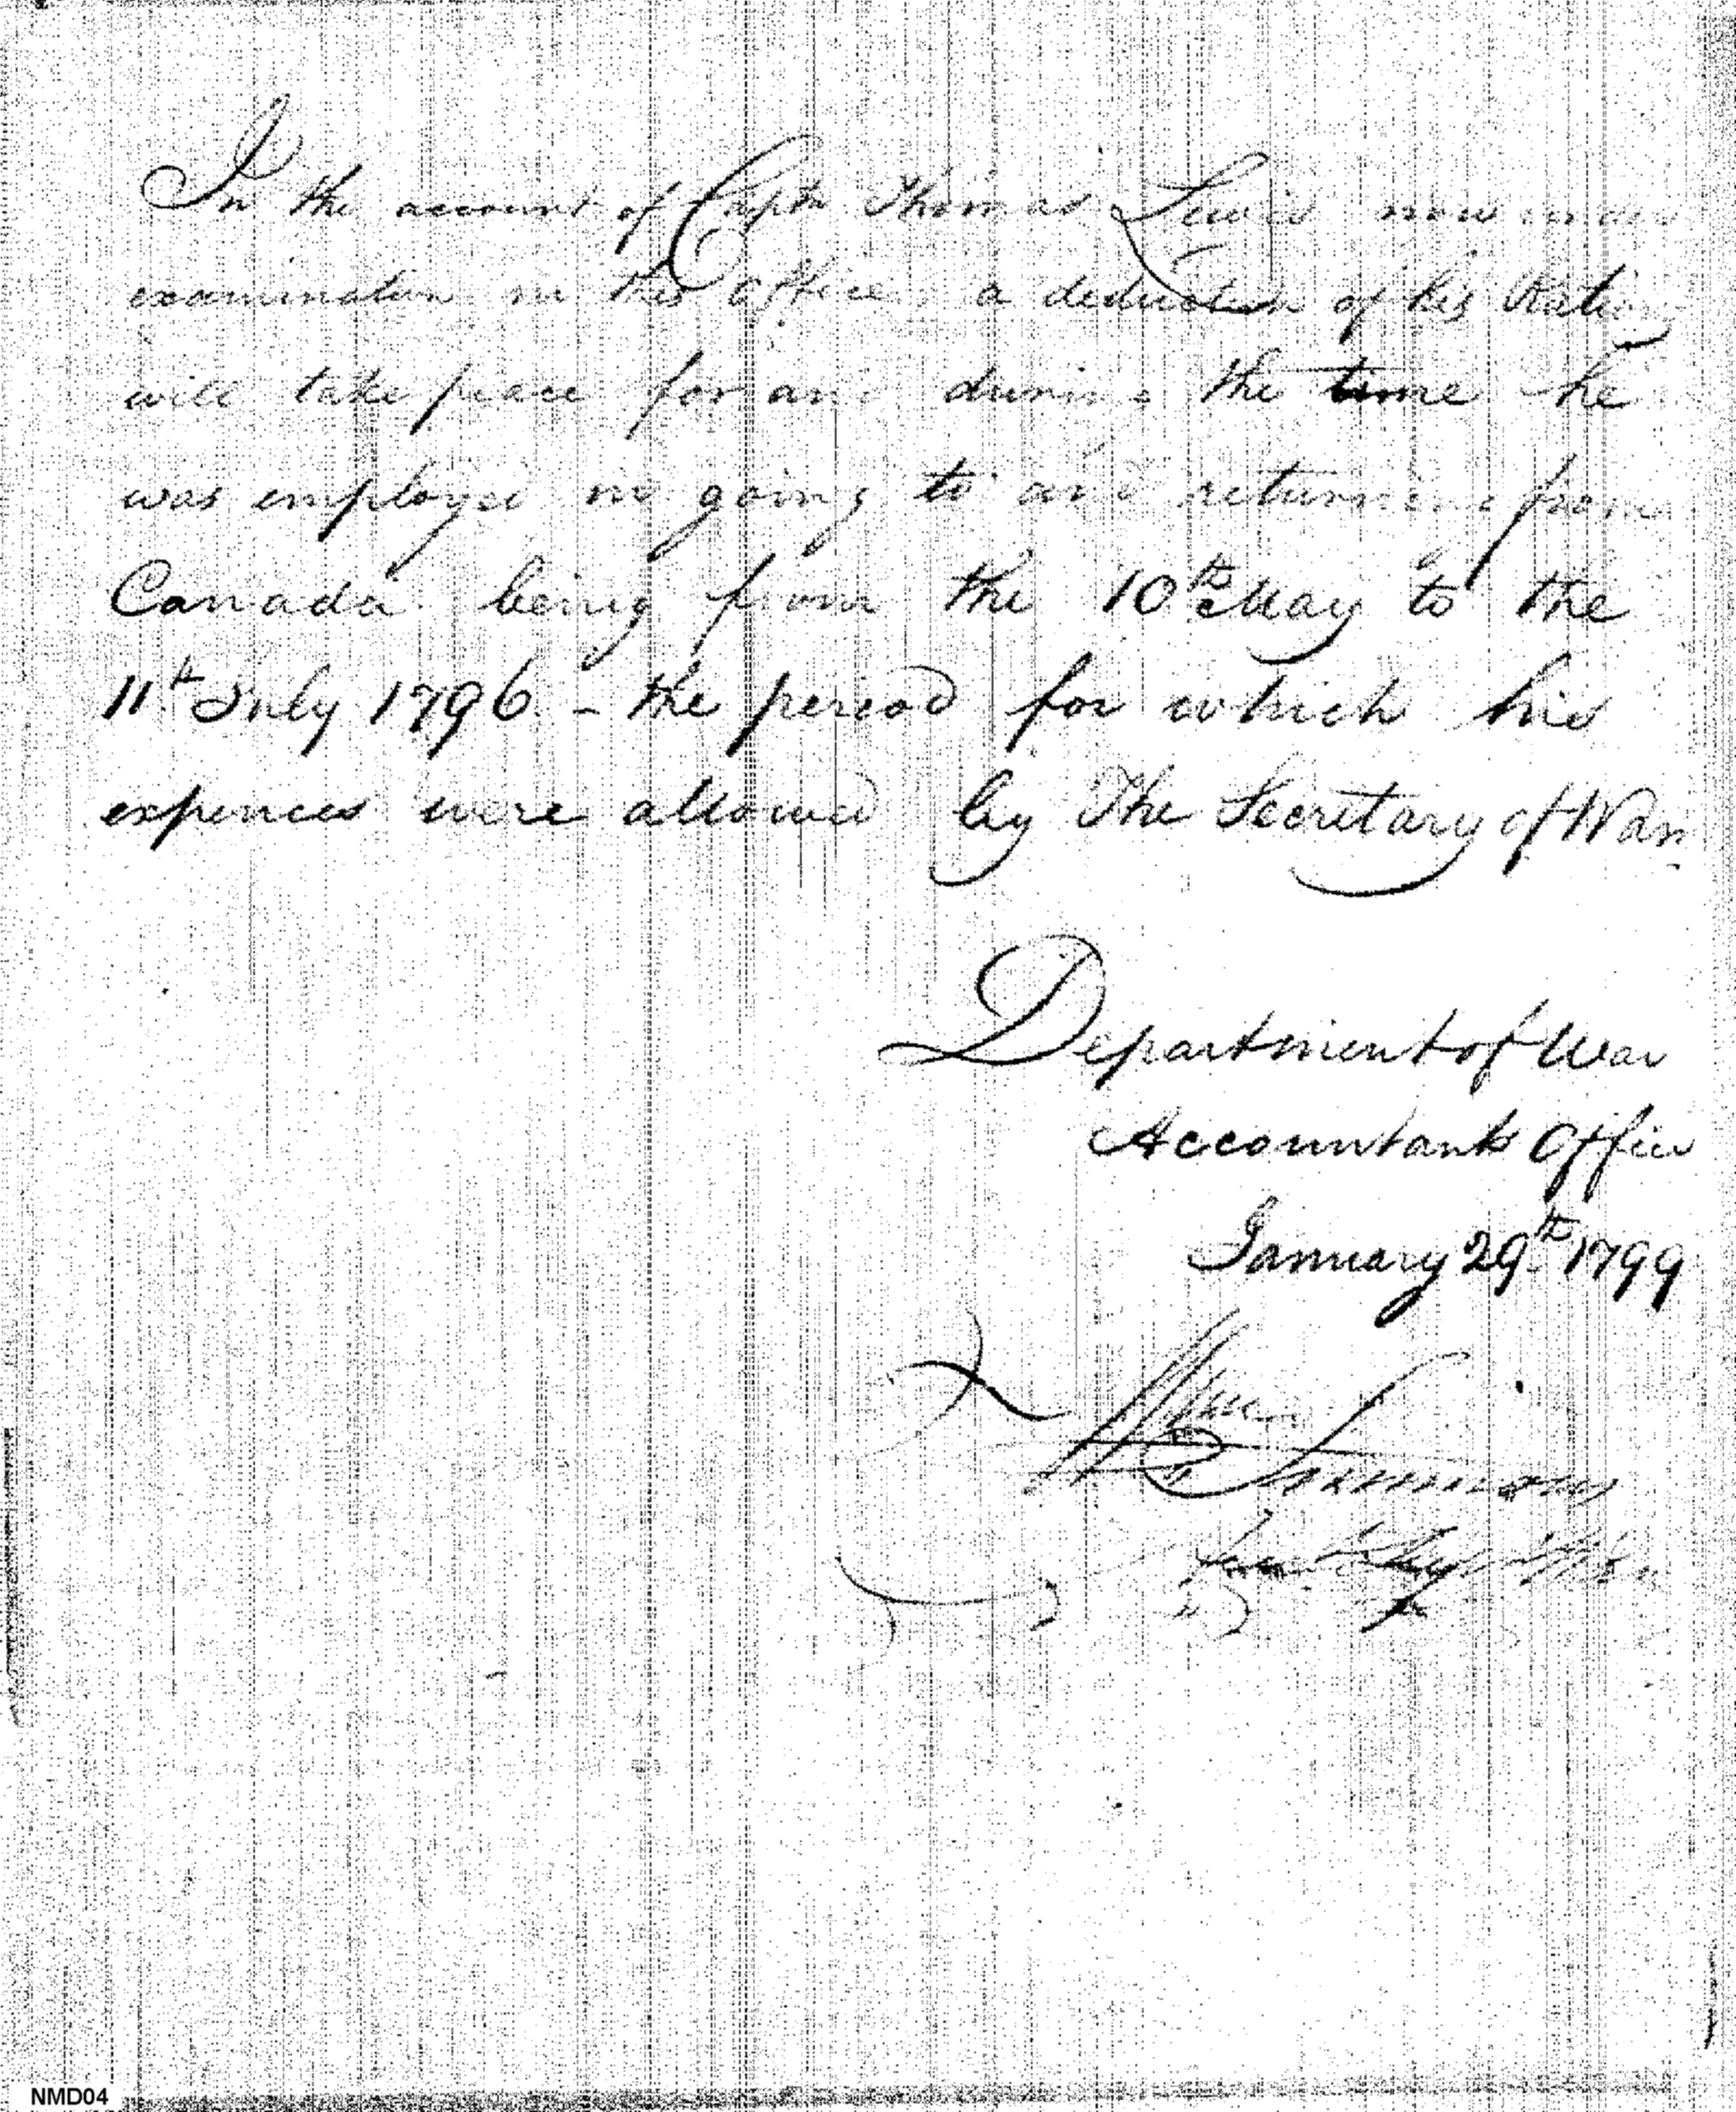 In the account of Captn Thomas Lewis now under
examination in this Office, a deduction of his Rations
will take place for and during the time he
was employed in going to and returning from
Canada being from the 10th May to the
11th July 1796. - the period for which his
expences were allowed by The Secretary of War.
Department of War
Accountants Office
January 29th 1799
Wm Simmons
NMD04